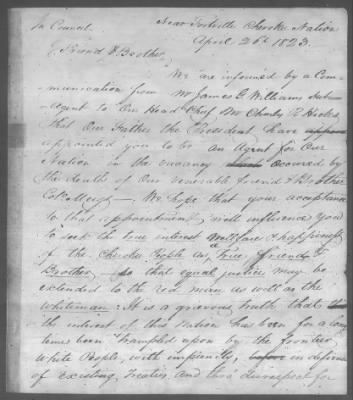 In Council
Near Fortville Cherokee Nation
April 26th 1823.
Friend & Brother,
We are informed by a Com-
munication from Mr James G. Williams Sub
Agent to our Head Chief Mr Charles R Hicks,
that Our Father the President have
appointed you to be an Agent for Our
Nation in the vacancy occured by
the death of Our venerable friend & Brother
Col. Meigs — We hope that your acceptance
to that appointment will influence you
to seek the true interest wellfare & happiness
of the Cherokee People as a true friend &
Brother — so that equal justice may be
extended to the red man as well as the
whiteman: It is a grievous truth that
the interest of this Nation has been for a long
times been trampled upon by the frontier
White People, with impunity, in defiance
of existing Treaties, and thro' disrespect for